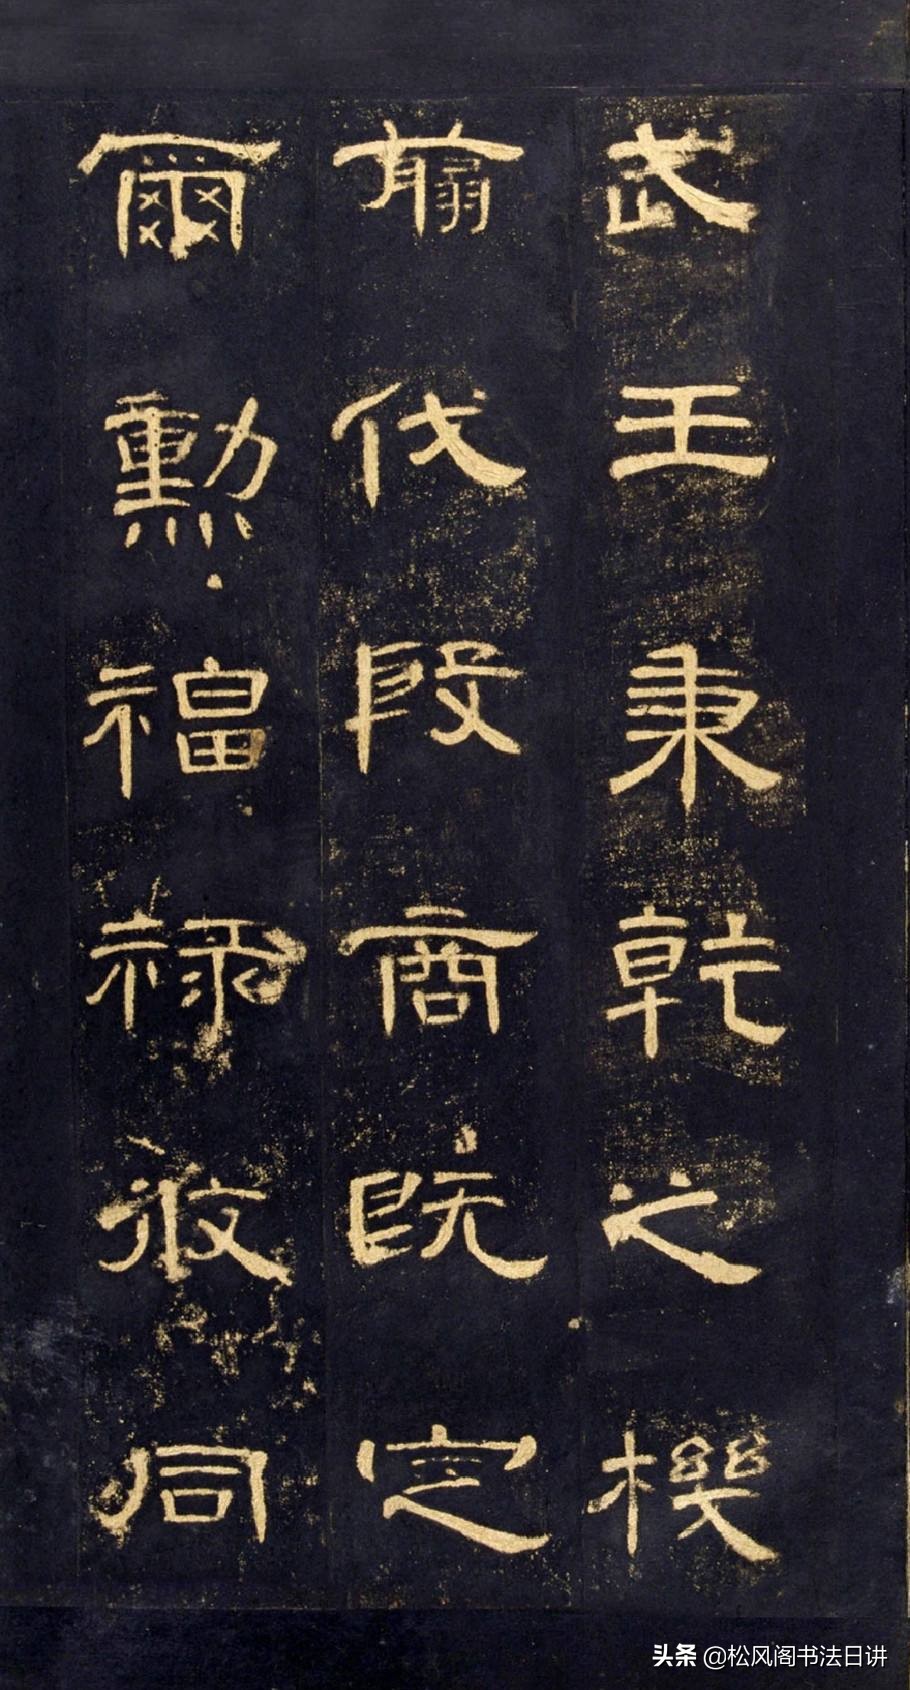 武王秉乾之機
翦伐殷商既定
爾勳福祿攸同
头条 @松风阁书法日讲